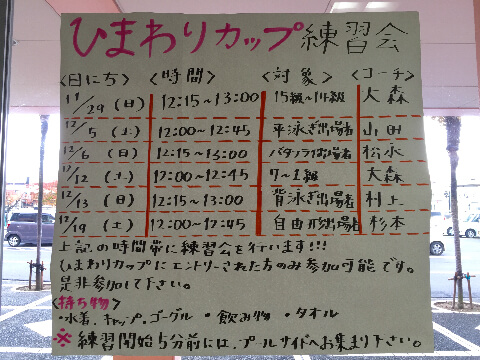 ひまわりカップ練習会
<日にち> <時間> <対象> <コーチ>
11/29(日) 12:15~13:00 15級~14級 大森
12/5(土) 12:00~12:45 平泳ぎ出場者 山田
12/6(日) 12:15~13:00 バタフライ出場者 松永
12/12(土) 12:00~12:45 7~1級 大森
12/13(日) 12:15~13:00 背泳ぎ出場者 村上
12/19(土) 12:00~12:45 自由形出場者 杉本
上記の時間帯に練習会を行います!!!
ひまわりカップにエントリーされた方のみ参加可能です。
是非参加して下さい。
<持ち物>
・水着、キャップ、ゴーグル ・飲み物 ・タオル
※練習開始5分前には、プールサイドへお集まり下さい。